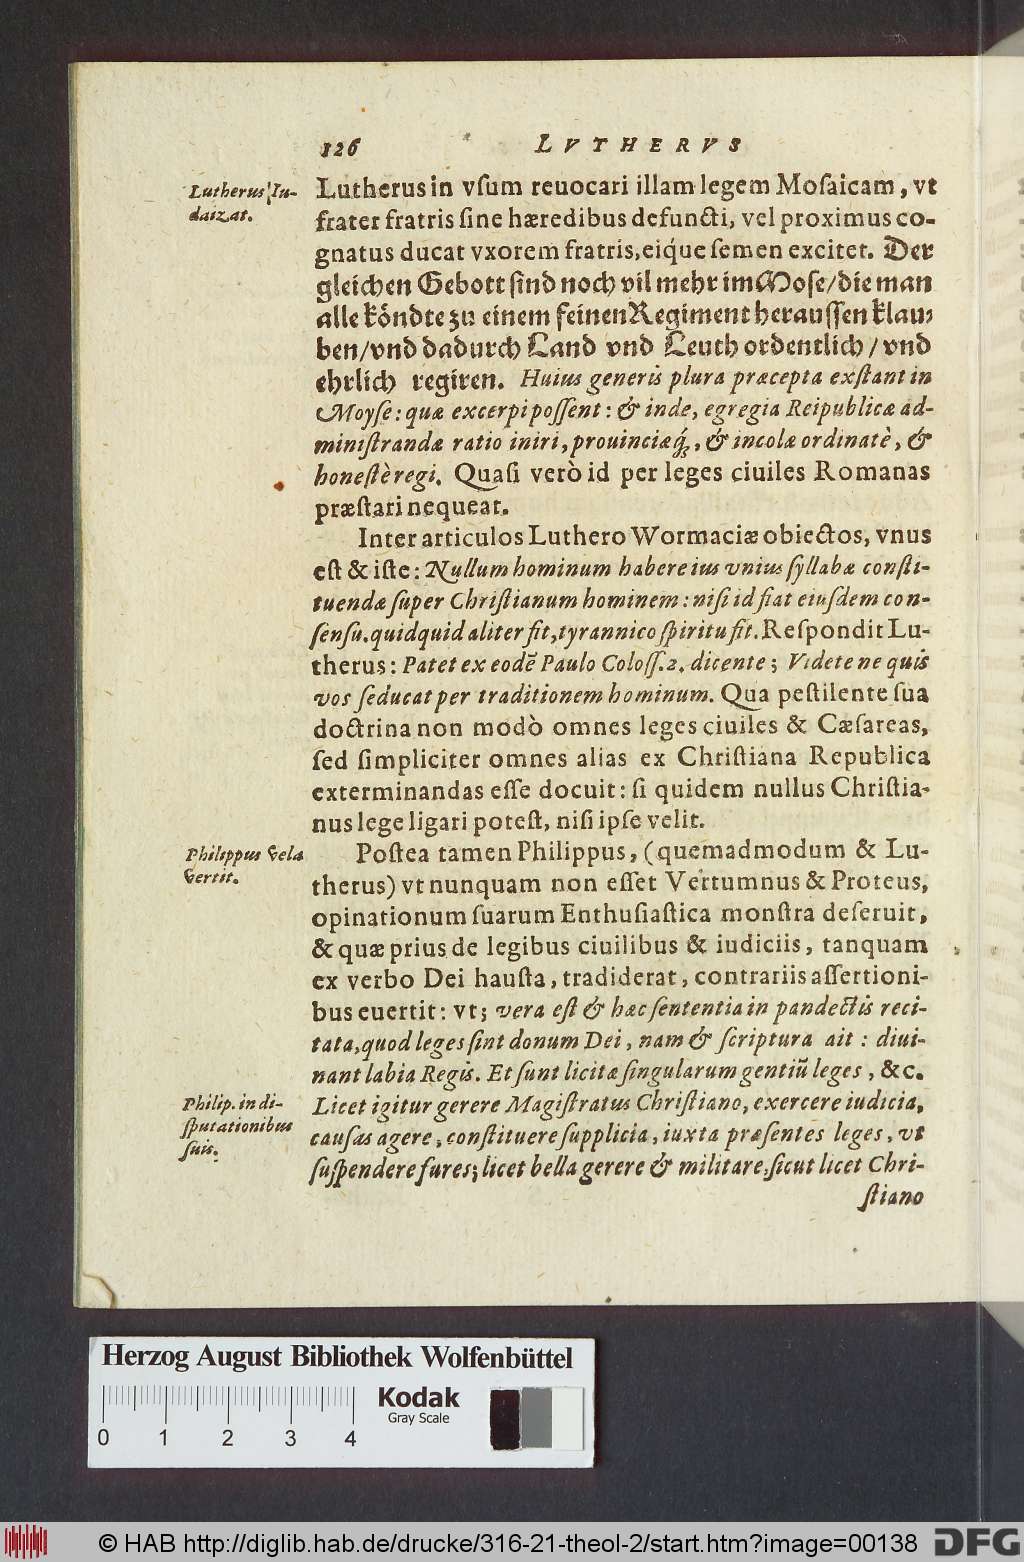 126 LVTHERVS
Lutherus Iu-
daizat.
Lutherus in vſum reuocari illam legem Moſaicam, vt
frater fratris ſine hæredibus defuncti, vel proximus co-
gnatus ducat vxorem fratris, eiq́ue ſemen excitet. Der
gleichen Gebott ſind noch vil mehr im Moſe/die man
alle köndte zu einem feinen Regiment herauſſen klau-
ben/vnd dadurch Land vnd Leuth ordentlich/vnd
ehrlich regiren. Huius generis plura præcepta exſtant in
Moyſe: quæ excerpi poſſent: & inde, egregia Reipublicæ ad-
miniſtrandæ ratio iniri, prouinciæq́;, & incolæ ordinatè, &
honeſtè regi. Quaſi verò id per leges ciuiles Romanas
præſtari nequeat.
Inter articulos Luthero Wormaciæ obiectos, vnus
eſt & iſte: Nullum hominum habere ius vnius ſyllabæ conſti-
tuendæ ſuper Chriſtianum hominem: niſi id fiat eiuſdem con-
ſenſu. quidquid aliter fit, tyrannico ſpiritu fit. Reſpondit Lu-
therus: Patet ex eodē Paulo Coloſſ. 2. dicente; Videte ne quis
vos ſeducat per traditionem hominum. Qua peſtilente ſua
doctrina non modò omnes leges ciuiles & Cæſareas,
ſed ſimpliciter omnes alias ex Chriſtiana Republica
exterminandas eſſe docuit: ſi quidem nullus Chriſtia-
nus lege ligari poteſt, niſi ipſe velit.
Philippus vela
vertit.
Poſtea tamen Philippus, (quemadmodum & Lu-
therus) vt nunquam non eſſet Vertumnus & Proteus,
opinationum ſuarum Enthuſiaſtica monſtra deſeruit,
& quæ prius de legibus ciuilibus & iudiciis, tanquam
ex verbo Dei hauſta, tradiderat, contrariis aſſertioni-
bus euertit: vt; vera eſt & hæc ſententia in pandectis reci-
tata, quod leges ſint donum Dei, nam & ſcriptura ait: diui-
nant labia Regis. Et ſunt licitæ ſingularum gentiū leges, &c.
Philip. in di-
ſputationibus
ſuis.
Licet igitur gerere Magiſtratus Chriſtiano, exercere iudicia,
cauſas agere, conſtituere ſupplicia, iuxta præſentes leges, vt
ſuſpendere fures; licet bella gerere & militare, ſicut licet Chri-
ſtiano
Herzog August Bibliothek Wolfenbüttel
Kodak
Gray Scale
0 1 2 3 4
© HAB http://diglib.hab.de/drucke/316-21-theol-2/start.htm?image=00138
DFG